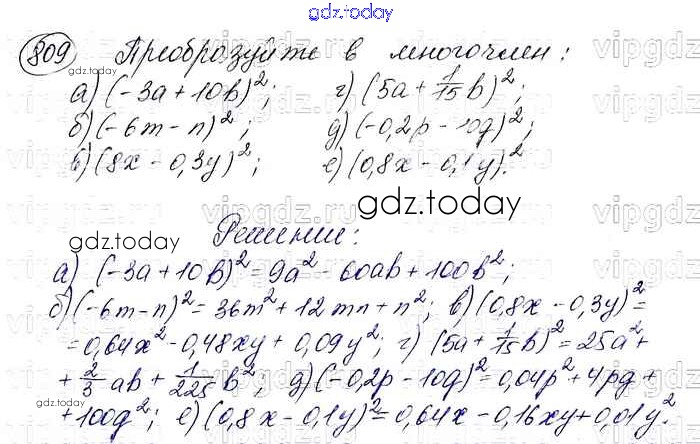 gdz.today
809 Преобразуйте в многочлен:
а) (-3a + 10b)²; г) (5a + 1/15 b)²;
б) (-6m - n)²; д) (-0,2p - 10q)²;
в) (8x - 0,3y)²; е) (0,8x - 0,1y)².
gdz.today
gdz.today
gdz.today
Решение:
а) (-3a + 10b)² = 9a² - 60ab + 100b²;
б) (-6m - n)² = 36m² + 12mn + n²; в) (0,8x - 0,3y)² =
= 0,64x² - 0,48xy + 0,09y²; г) (5a + 1/15 b)² = 25a² +
+ 2/3 ab + 1/225 b²; д) (-0,2p - 10q)² = 0,04p² + 4pq +
+ 100q²; е) (0,8x - 0,1y)² = 0,64x - 0,16xy + 0,01y².
gdz.today